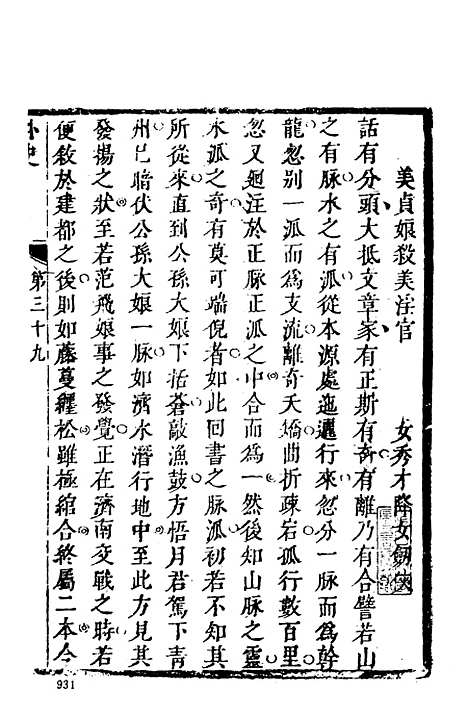 美貞娘殺美淫官　女秀才降女劒俠
話有分頭大抵文章家有正斯有奇有離乃有合譬若山
之有脉水之有派從本源處迤邐行來忽分一脉而爲幹
龍忽別一派而爲支流離奇夭矯曲折疎宕孤行數百里
忽又廻注於正脉正派之中合而爲一然後知山脉之靈
水派之奇有莫可端倪者如此回書之脉派初若不知其
所從來直到公孫大娘下括蒼敲漁鼓方悟月君駕下青
州已暗伏公孫大娘一脉如濟水潛行地中至此方見其
發揚之狀至若范飛娘事之發覺正在濟南交戰之時若
便敘於建都之後則如藤蔓纒松雖極綰合終屬二本今
外史
第三十九
931